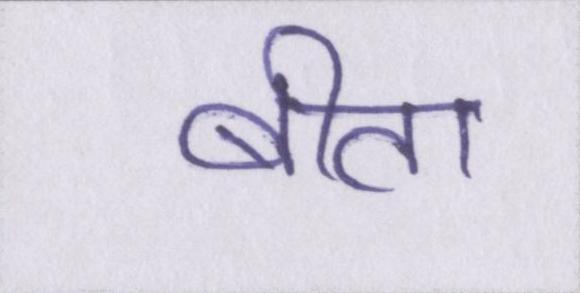 बीता